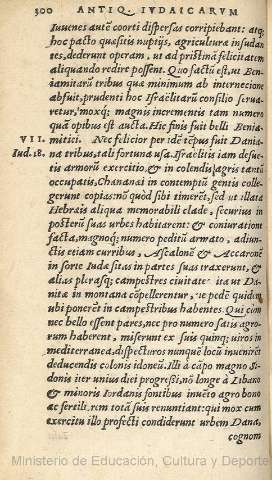 300 ANTIQ. IVDAICARVM
Iuuenes autē coorti dispersas corripiebant: atq;
hoc pacto quæsitis nuptijs, agriculturæ insudan
tes, dederunt operam, ut ad pristinā felicitatem
aliquando redire possent. Quo factū est, ut Ben-
iamitarū tribus quæ minimum ab internecione
abfuit, prudenti hoc Israëlitarū consilio serua-
retur, moxq; magnis incrementis tam numero
quā opibus est aucta. Hic finis fuit belli Benia-
VII. mitici. Nec felicior per idē tēpus fuit Dania-
Iud. 18. na tribus, tali fortuna usa. Israëlitis iam desue-
tis armorū exercitio, & in colendis agris tantū
occupatis, Chananæi in contemptū gentis colle-
gerunt copias: nō quòd sibi timerēt, sed ut illata
Hebræis aliqua memorabili clade, securius in
posterū suas urbes habitarent: & coniuratione
facta, magnoq; numero peditū armato, adiun-
ctis etiam curribus, Ascalonē & Accaronē
in sorte Iudæ sitas in partes suas traxerunt, &
alias plerasq; campestres ciuitates: ita ut Da-
nitæ in montana cōpellerentur, ne pedē quidem
ubi ponerēt in campestribus habentes. Qui cùm
nec bello essent pares, nec pro numero satis agro-
rum haberent, miserunt ex suis quinq; uiros in
mediterranea, dispecturos nunquē locū inuenirēt
deducendis colonis idoneū. Illi à capo magno Si-
donis iter unius diei progressi, nō longè à Libano
& minoris Iordanis fontibus inuēto agro bono
ac fertili, rem totā suis renuntiant: qui mox cum
exercitu illo profecti condiderunt urbem Dana,
cognom
Ministerio de Educación, Cultura y Deporte